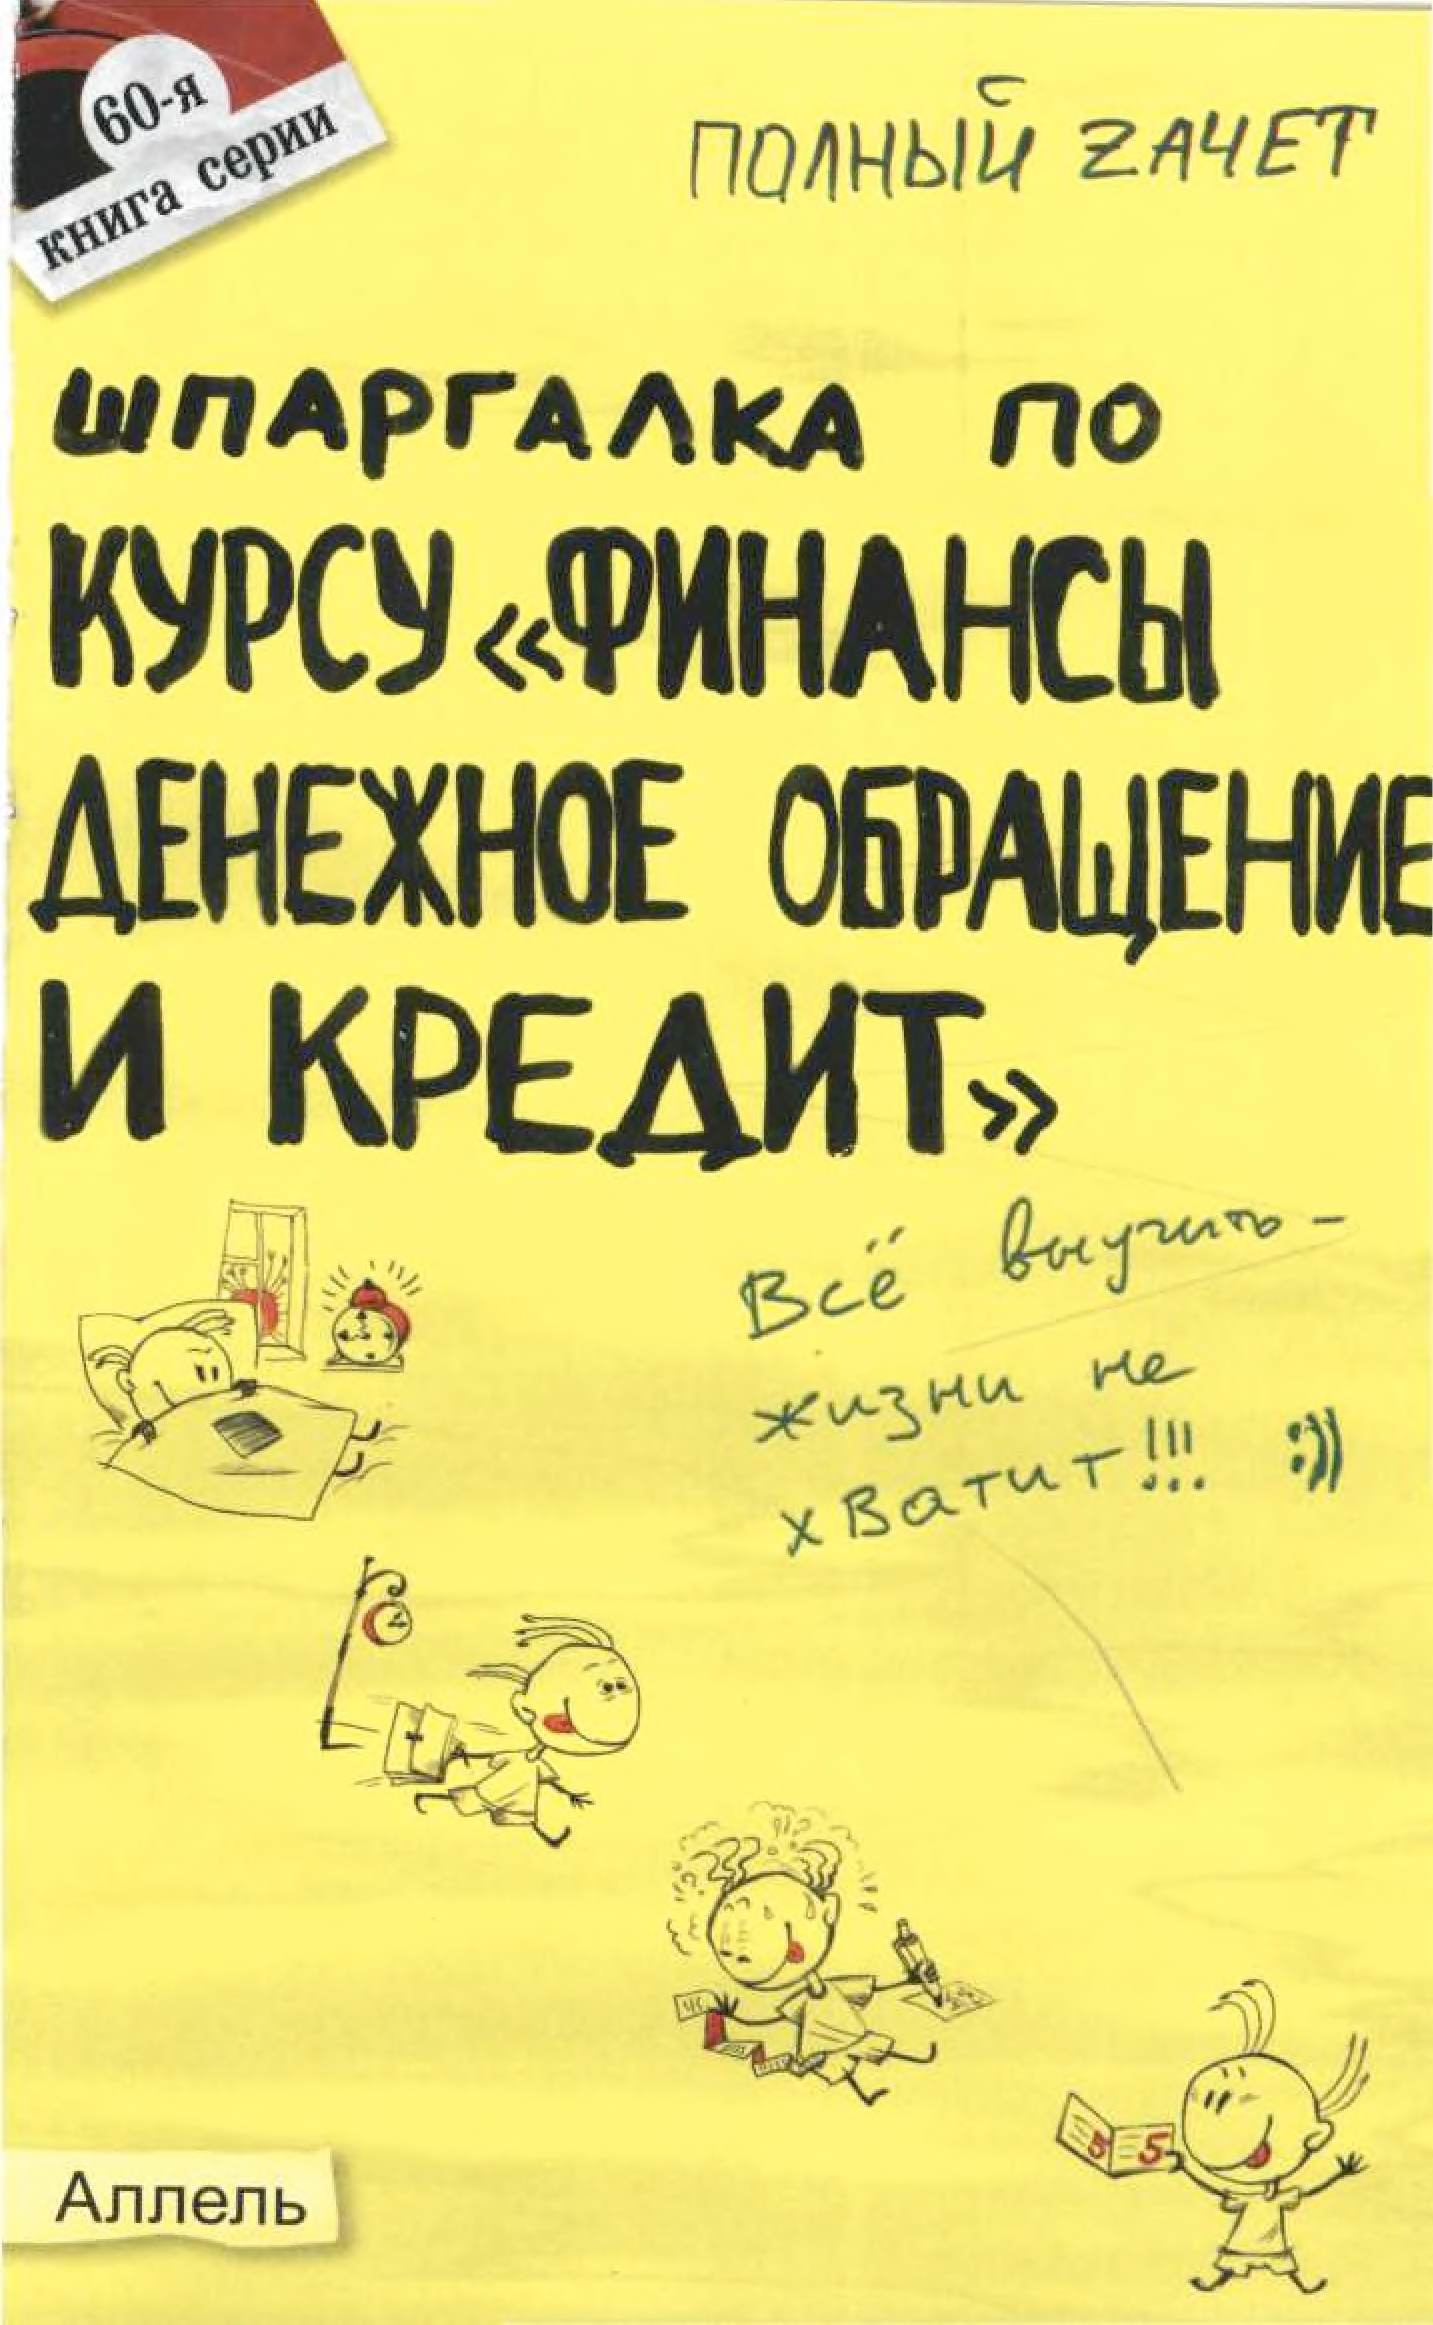 60-я
книга серии
ПОЛНЫЙ ZАЧЕТ
ШПАРГАЛКА ПО
КУРСУ «ФИНАНСЫ
ДЕНЕЖНОЕ ОБРАЩЕНИЕ
И КРЕДИТ»
Всё выучить –
жизни не
хватит!!! :))
5 5
Аллель